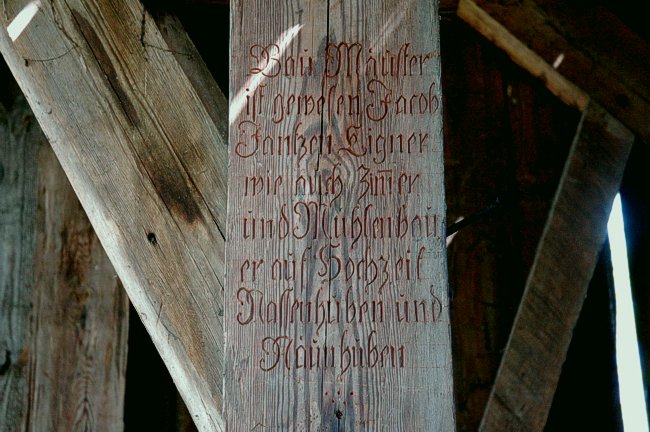 Bau Mäuster
ist gewesen Jacob
Jantzen Eigner
wie auch Zim̄er
und Mühlenbau
er auf Hochzeit
Nassenhuben und
Näunhuben